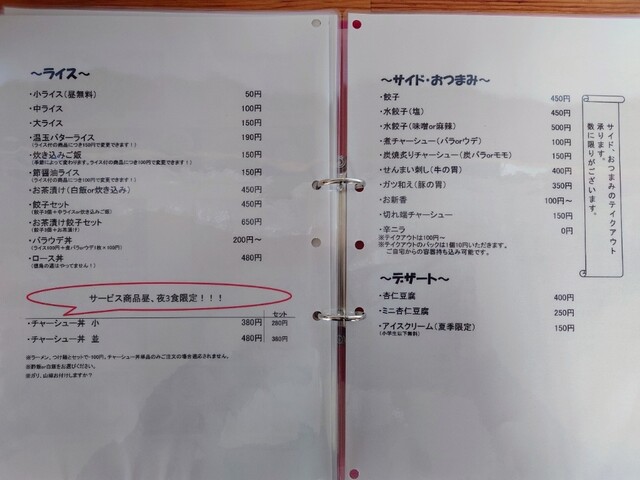 ～ライス～
・小ライス(昼無料) 50円
・中ライス 100円
・大ライス 150円
・温玉バターライス 190円
(ライス付の商品につき150円で変更できます！)
・炊き込みご飯 150円
(季節によって変わります。ライス付の商品につき100円で変更できます！)
・節醤油ライス 150円
(ライス付の商品につき100円で変更できます！)
・お茶漬け(白飯or炊き込み) 450円
・餃子セット 450円
(餃子3個＋中ライスor炊き込みご飯)
・お茶漬け餃子セット 650円
(餃子3個＋お茶漬け)
・バラウデ丼 200円～
・ロース丼 480円
サービス商品昼、夜3食限定！！！
セット
・チャーシュー丼 小 380円 280円
・チャーシュー丼 並 480円 380円
※ラーメン、つけ麺とセットで-100円。チャーシュー丼単品のみご注文の場合適応されません。
※酢飯or白飯をお選びください。
※ガリ、山椒お付けしますか？
～サイド・おつまみ～
・餃子 450円
・水餃子(塩) 450円
・水餃子(味噌or麻辣) 500円
・煮チャーシュー(バラorウデ) 100円
・炭焼炙りチャーシュー(炭バラorモモ) 150円
・せんまい刺し(牛の胃) 400円
・ガツ和え(豚の胃) 350円
・お新香 100円～
・切れ端チャーシュー 150円
・辛ニラ 0円
※テイクアウトは100円～
※テイクアウトのパックは1個10円いただきます。
ご自宅からの容器持ち込み可能です。
サイド、おつまみのテイクアウト
承ります。
数に限りがございます。
～デザート～
・杏仁豆腐 400円
・ミニ杏仁豆腐 250円
・アイスクリーム(夏季限定) 150円
(小学生以下無料)